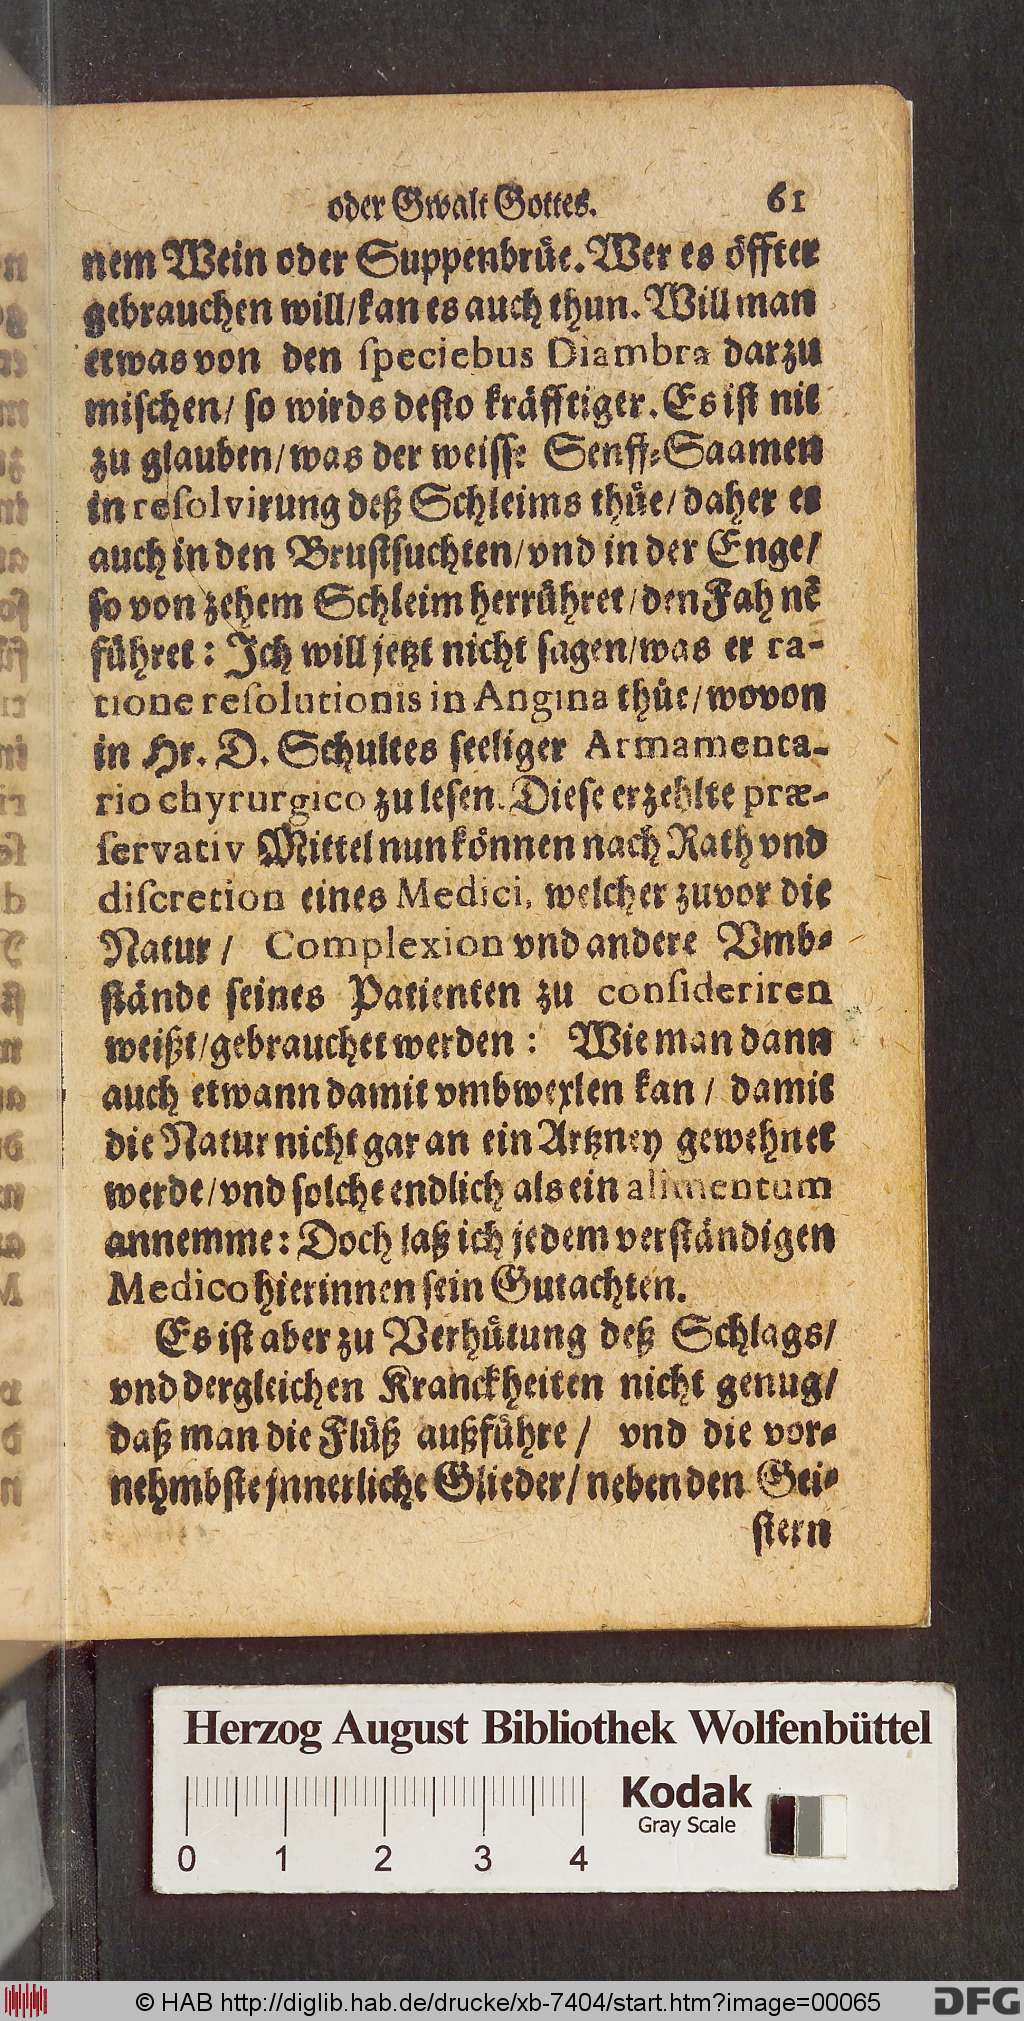 oder Gwalt Gottes. 61
nem Wein oder Suppenbrüe. Wer es öffter
gebrauchen will/kan es auch thun. Will man
etwas von den ſpeciebus Diambra darzu
miſchen/ ſo wirds deſto kräfftiger. Es iſt nit
zu glauben/was der weiſſe Senff-Saamen
in reſolvirung deß Schleims thüe/daher es
auch in den Bruſtſuchten/vnd in der Enge/
ſo von zehem Schleim herrühret/den Fahnẽ
führet: Ich will jetzt nicht ſagen/was er ra-
tione reſolutionis in Angina thüe/wovon
in Hr. D. Schultes ſeeliger Armamenta-
rio chyrurgico zu leſen. Dieſe erzehlte præ-
ſervativ Mittel nun können nach Rath vnd
diſcretion eines Medici, welcher zuvor die
Natur/ Complexion vnd andere Vmb-
ſtände ſeines Patienten zu conſideriren
weißt/gebrauchet werden: Wie man dann
auch etwann damit vmbwexlen kan/ damit
die Natur nicht gar an ein Artzney gewehnet
werde/vnd ſolche endlich als ein alimentum
annemme: Doch laß ich jedem verſtändigen
Medico hierinnen ſein Gutachten.
Es iſt aber zu Verhütung deß Schlags/
vnd dergleichen Kranckheiten nicht genug/
daß man die Flüß außführe/ vnd die vor-
nehmbſte jnnerliche Glieder/neben den Gei-
ſtern
Herzog August Bibliothek Wolfenbüttel
Kodak
Gray Scale
0 1 2 3 4
© HAB http://diglib.hab.de/drucke/xb-7404/start.htm?image=00065
DFG